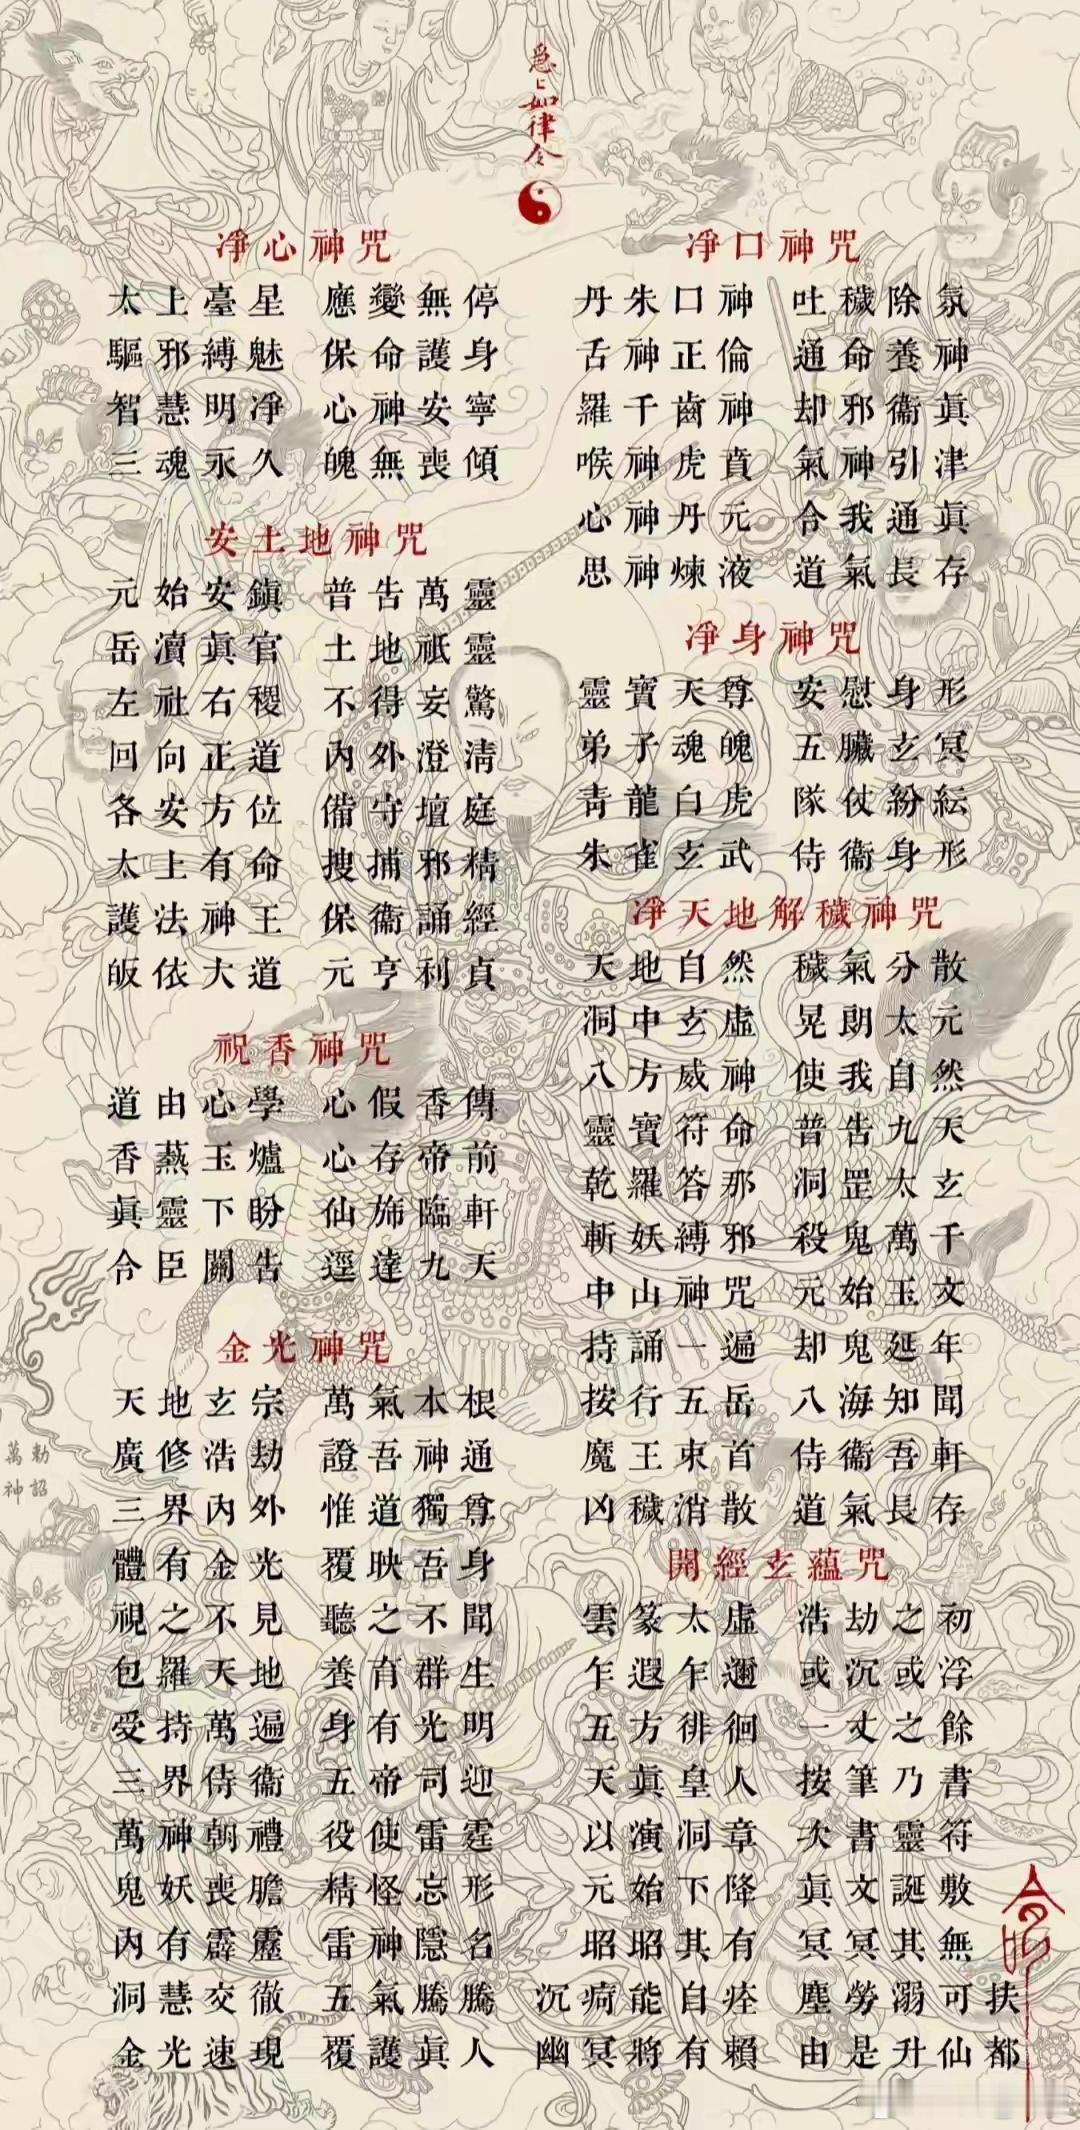 急急如律令
淨心神咒
太上臺星 應變無停
驅邪縛魅 保命護身
智慧明淨 心神安寧
三魂永久 魄無喪傾
安土地神咒
元始安鎮 普告萬靈
岳瀆眞官 土地祇靈
左社右稷 不得妄驚
回向正道 內外澄清
各安方位 備守壇庭
太上有命 搜捕邪精
護法神王 保衞誦經
皈依大道 元亨利貞
祝香神咒
道由心學 心假香傳
香爇玉爐 心存帝前
眞靈下盼 仙斾臨軒
令臣關告 逕達九天
金光神咒
天地玄宗 萬氣本根
廣修浩劫 證吾神通
三界內外 惟道獨尊
體有金光 覆映吾身
視之不見 聽之不聞
包羅天地 養育群生
受持萬遍 身有光明
三界侍衞 五帝司迎
萬神朝禮 役使雷霆
鬼妖喪膽 精怪忘形
內有霹靂 雷神隱名
洞慧交徹 五氣騰騰
金光速現 覆護眞人
淨口神咒
丹朱口神 吐穢除氛
舌神正倫 通命養神
羅千齒神 却邪衞眞
喉神虎賁 氣神引津
心神丹元 合我通眞
思神煉液 道氣長存
淨身神咒
靈寶天尊 安慰身形
弟子魂魄 五臟玄冥
青龍白虎 隊仗紛紜
朱雀玄武 侍衞身形
淨天地解穢神咒
天地自然 穢氣分散
洞中玄虛 晃朗太元
八方威神 使我自然
靈寶符命 普告九天
乾羅答那 洞罡太玄
斬妖縛邪 殺鬼萬千
中山神咒 元始玉文
持誦一遍 却鬼延年
按行五岳 八海知聞
魔王束首 侍衞吾軒
凶穢消散 道氣長存
開經玄蘊咒
雲篆太虛 浩劫之初
乍遐乍邇 或沉或浮
五方徘徊 一丈之餘
天眞皇人 按筆乃書
以演洞章 次書靈符
元始下降 眞文誕敷
昭昭其有 冥冥其無
沉疴能自痊 塵勞溺可扶
幽冥將有賴 由是升仙都
勅詔
萬神